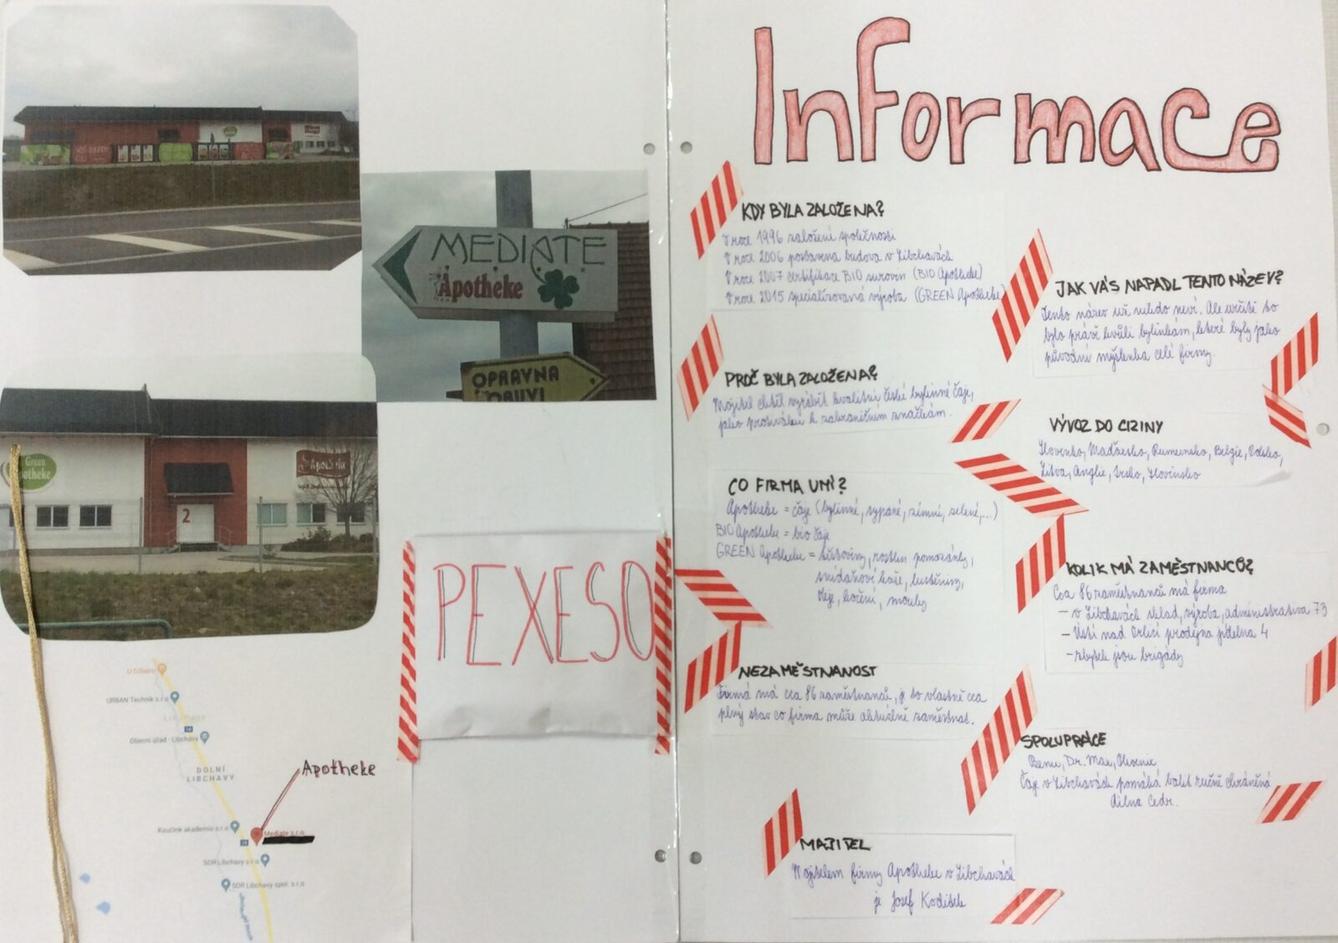 MEDIATE
Apotheke
OPRAVNA
OBUVI
Green
Apotheke
Apotheke
2
PEXESO
U Občerv
URBAN Technik s.r.o
Obecní úřad - Libchavy
DOLNÍ
LIBCHAVY
Apotheke
Koučink akademie s.r.o
Mediate s.r.o.
SOR Libchavy s.r.o
SOR Libchavy spol. s.r.o
Informace
KDY BYLA ZALOŽENA?
V roce 1996 založení společnosti
V roce 2006 postavena budova v Libchavách
V roce 2007 certifikace BIO surovin (BIO Apotheke)
V roce 2015 specializovaná výroba (GREEN Apotheke)
PROČ BYLA ZALOŽENA?
Majitel chtěl vyrábět kvalitní české bylinné čaje,
jako protiváhu k zahraničním značkám.
CO FIRMA UMÍ?
Apotheke = čaje (bylinné, sypané, zimní, zelené,...)
BIO Apotheke = bio čaje
GREEN Apotheke = těstoviny, rostlin. pomazánky,
snídaňové kaše, luštěniny,
oleje, koření, mouky
NEZAMĚSTNANOST
Firma má cca 86 zaměstnanců, je to vlastně cca
plný stav co firma může aktuálně zaměstnat.
MAJITEL
Majitelem firmy Apotheke v Libchavách
je Josef Kodíšek
JAK VÁS NAPADL TENTO NÁZEV?
Tento název už nikdo neví. Ale určitě to
bylo právě kvůli bylinkám, které byly jako
původní myšlenka celé firmy.
VÝVOZ DO CIZINY
Slovensko, Maďarsko, Rumunsko, Belgie, Polsko,
Litva, Anglie, Irsko, Slovinsko
KOLIK MÁ ZAMĚSTNANCŮ?
Cca 86 zaměstnanců má firma
- v Libchavách sklad, výroba, administrativa 73
- Ústí nad Orlicí prodejna jídelna 4
- zbytek jsou brigády
SPOLUPRÁCE
Benu, Dr. Max,
Čaje v Libchavách pomáhá balit ručně chráněná
dílna Cedr.